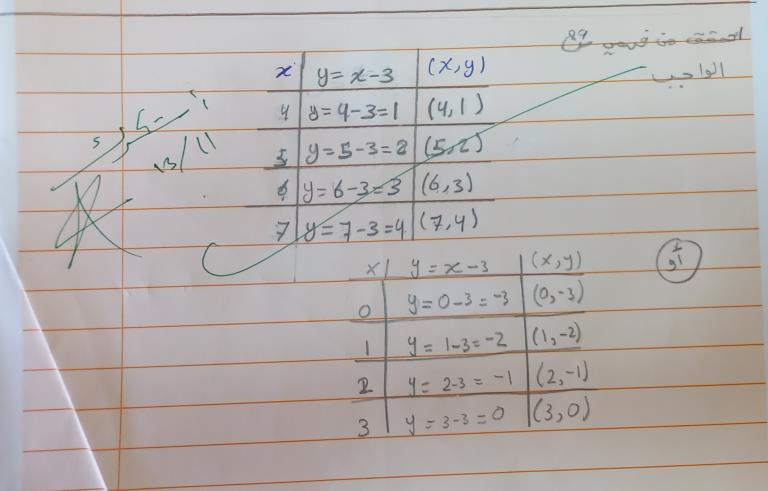 التحقق من فهمي ص 89
الواجب
x y = x - 3 (x, y)
4 y = 4 - 3 = 1 (4, 1)
5 y = 5 - 3 = 2 (5, 2)
6 y = 6 - 3 = 3 (6, 3)
7 y = 7 - 3 = 4 (7, 4)
أو
x y = x - 3 (x, y)
0 y = 0 - 3 = -3 (0, -3)
1 y = 1 - 3 = -2 (1, -2)
2 y = 2 - 3 = -1 (2, -1)
3 y = 3 - 3 = 0 (3, 0)